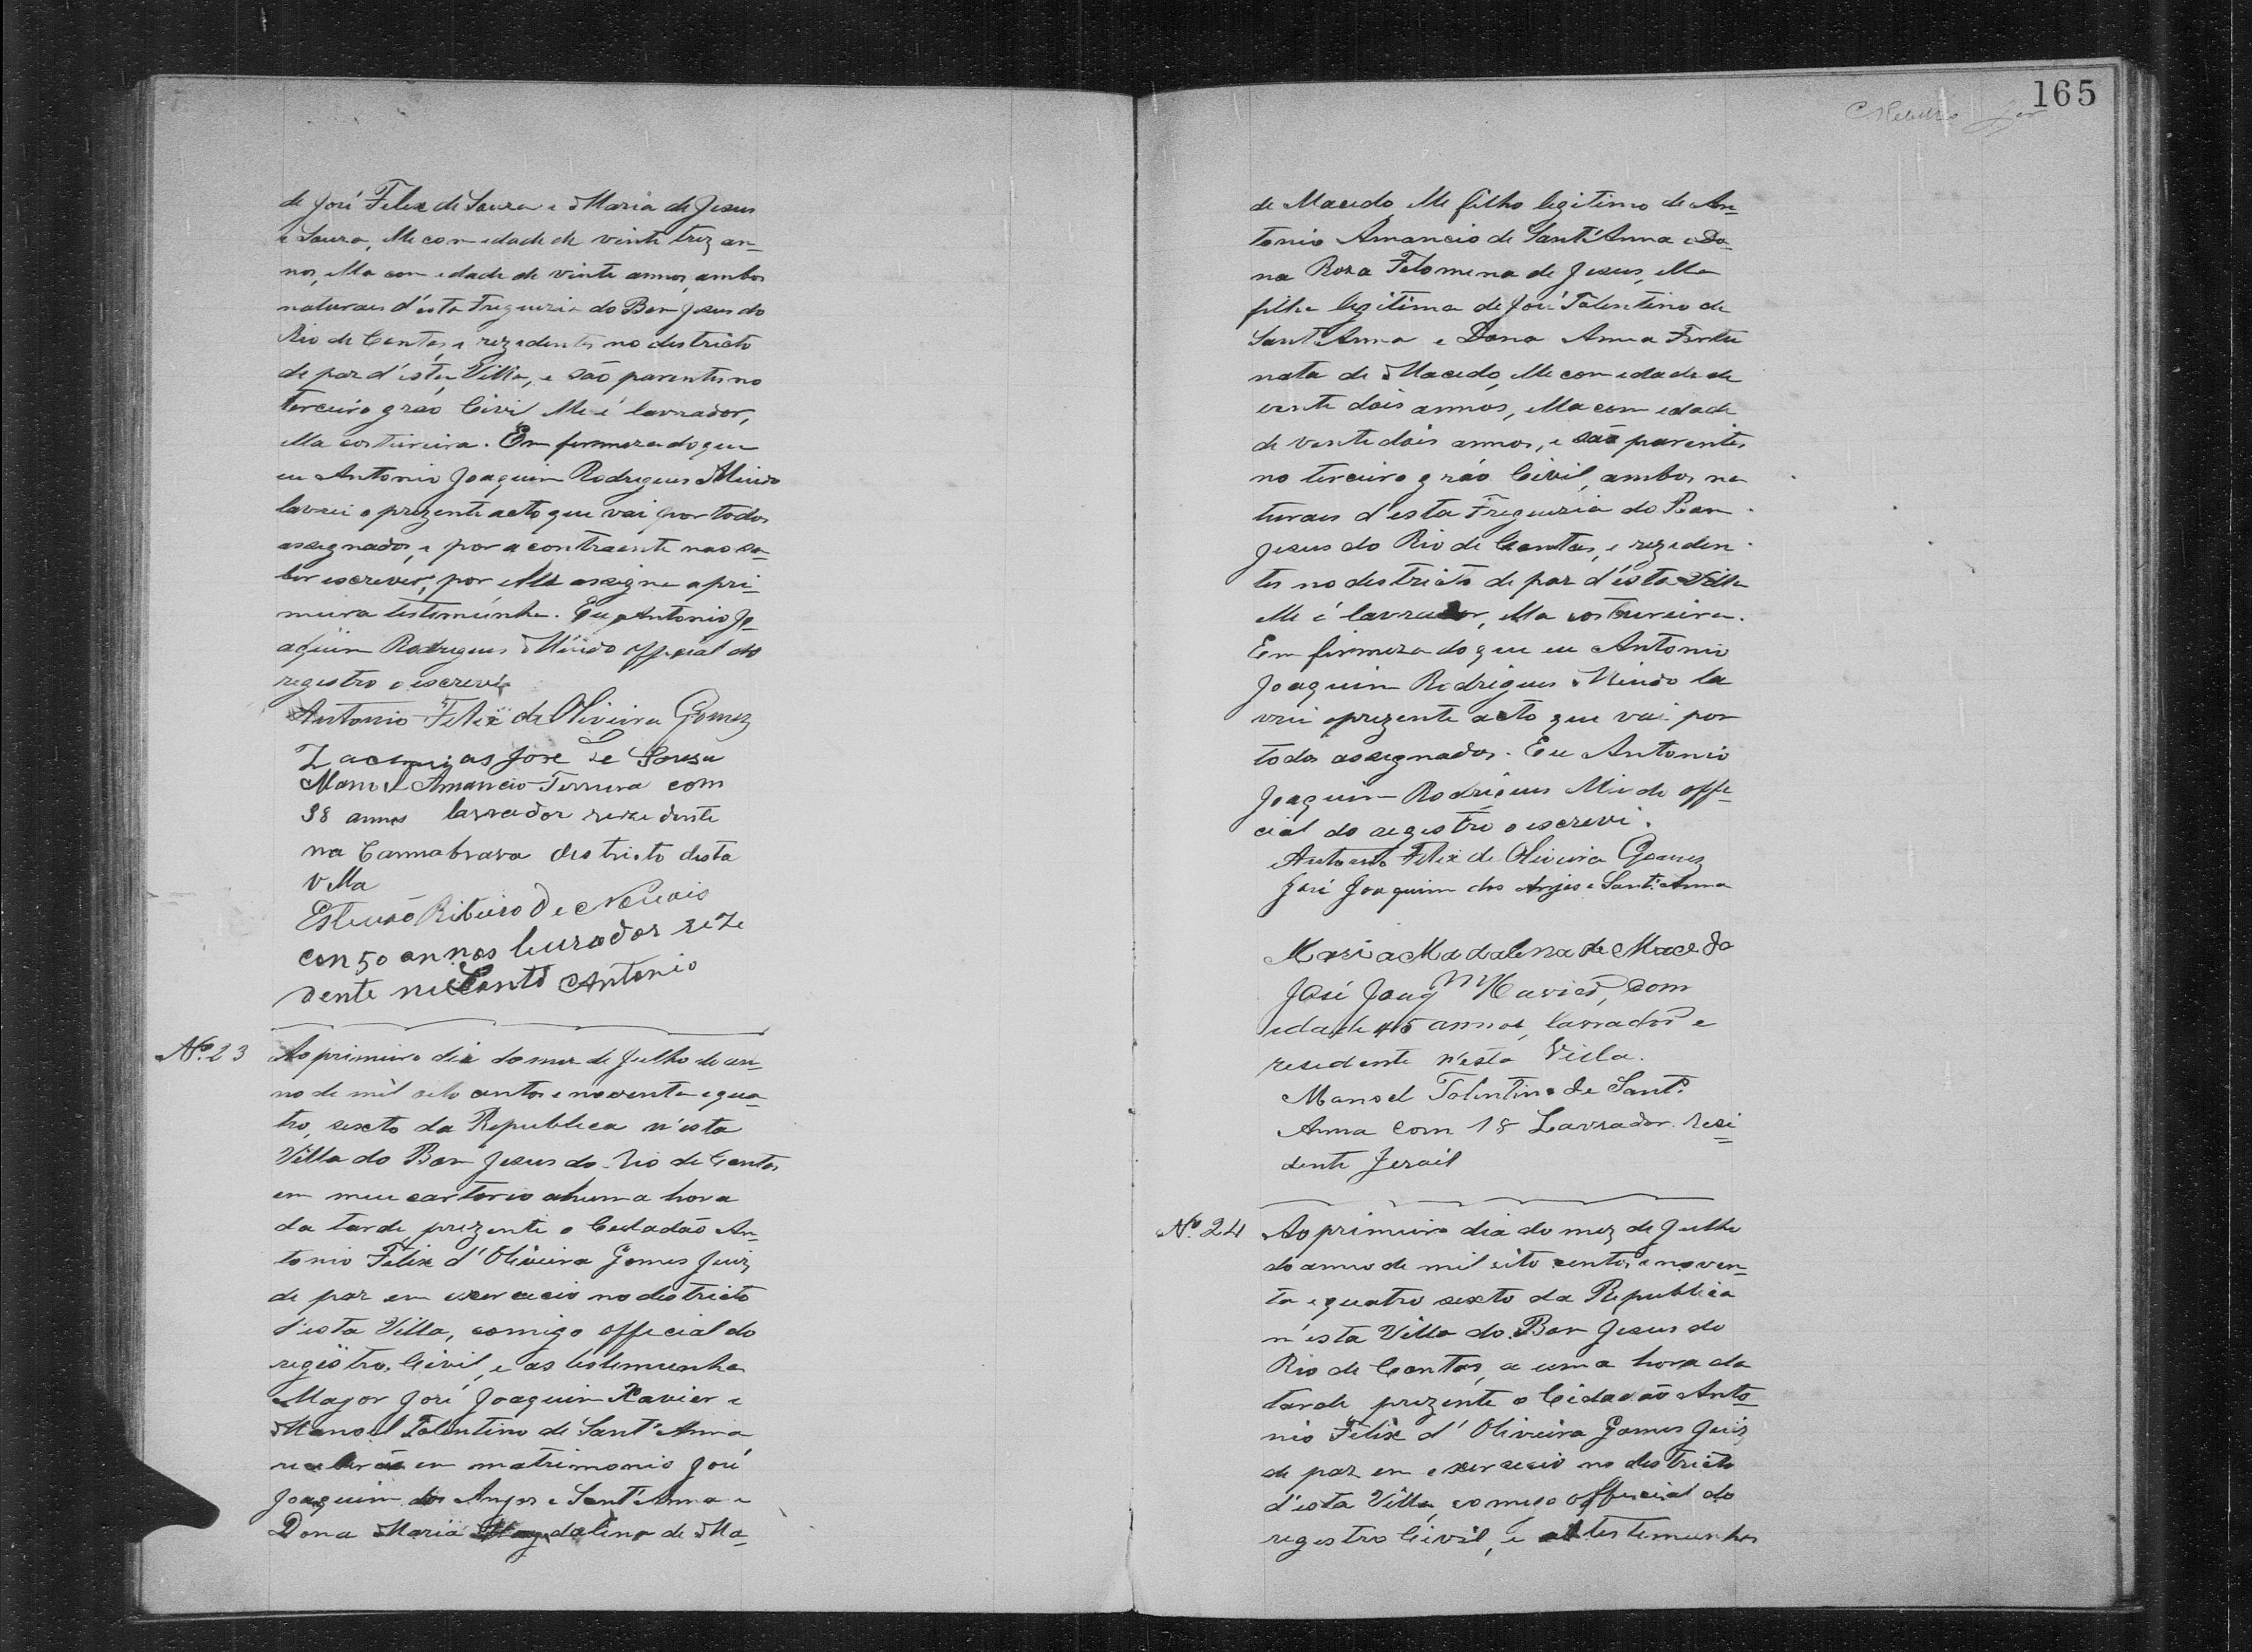 de José Felix de Souza e Maria de Jesus
e Souza, elle com edade de vinte trez an-
nos, ella com edade de vinte annos, ambos
naturaes d'esta Freguezia do Bom Jesus do
Rio de Contas, e rezedentes no destricto
de paz d'esta Villa, e são parentes no
terceiro gráo Civil elle é lavrador,
ella costureira. Em firmeza do que
eu Antonio Joaquim Rodrigues Miudo
lavrei o prezente acto que vai por todos
assegnados, e por a contraente nao sa-
ber escrever, por ella assigna a pri-
meira testemunha. Eu, Antonio Jo-
aquim Rodrigues Miúdo official do
registro o escrevi
Antonio Felix de Oliveira Gomez
Zacarias Jose de Souza
Manoel Amancio Ferreira com
38 annos lavrador rezedente
na Cannabrava destricto desta
villa
Estevão Ribeiro de Novais
con 50 annos lavrador reze
dente no Santo Antonio
Nº. 23 Ao primeiro dia do mez de Julho do an-
no de mil oito centos e noventa e qua-
tro, sexto da Republica n'esta
Villa do Bom Jesus do Rio de Contas
em meu cartorio a huma hora
da tarde prezente o Cidadão An-
tonio Felix d'Oliveira Gomes Juiz
de paz em exercicio no destricto
d'esta Villa, comigo official do
registro Civil, e as testemunha
Major José Joaquim Xavier e
Manoel Tolentino de Sant'Anna,
receberão em matrimonio José
Joaquim dos Anjos e Sant'Anna e
Dona Maria Magdalena de Ma-
165
de Macedo, elle filho legitimo de An-
tonio Amancio de Sant'Anna e Do-
na Roza Felomena de Jesus, ella
filha legitima de José Tolentino de
Sant'Anna e Dona Anna Fortu
nata de Macedo, elle com edade de
vente dois annos, ella com edade
de vente dois annos, e são parentes
no terceiro gráo Civil, ambos na
turaes d'esta Freguezia do Bom
Jesus do Rio de Contas, e rezeden
tes no destricto de paz d'esta Villa
elle é lavrador, ella costureira.
Em firmeza do que eu Antonio
Joaquim Rodrigues Miudo la
vrei o prezente acto que vai por
todos assegnados. Eu Antonio
Joaquim Rodrigues Miudo offi-
cial do registro o escrevi.
Antonio Felix de Oliveira Gomez
José Joaquim dos Anjos e Sant'Anna
Maria Madalena de Macedo
José Joaqm Xavier, com
edade 45 annos, lavrador e
residente n'esta Villa.
Manoel Tolentino de Sant'
Anna com 18 Lavrador resi
dente
Nº. 24 Ao primeiro dia do mez de Julho
do anno de mil oito centos e noven-
ta e quatro sexto da Republica
n'esta Villa do Bom Jesus do
Rio de Contas, a uma hora da
tarde prezente o Cidadão Anto-
nio Felix d'Oliveira Gomes Juiz
de paz em exercicio no destricto
d'esta Villa, comigo official do
registro Civil, e as testemunhas